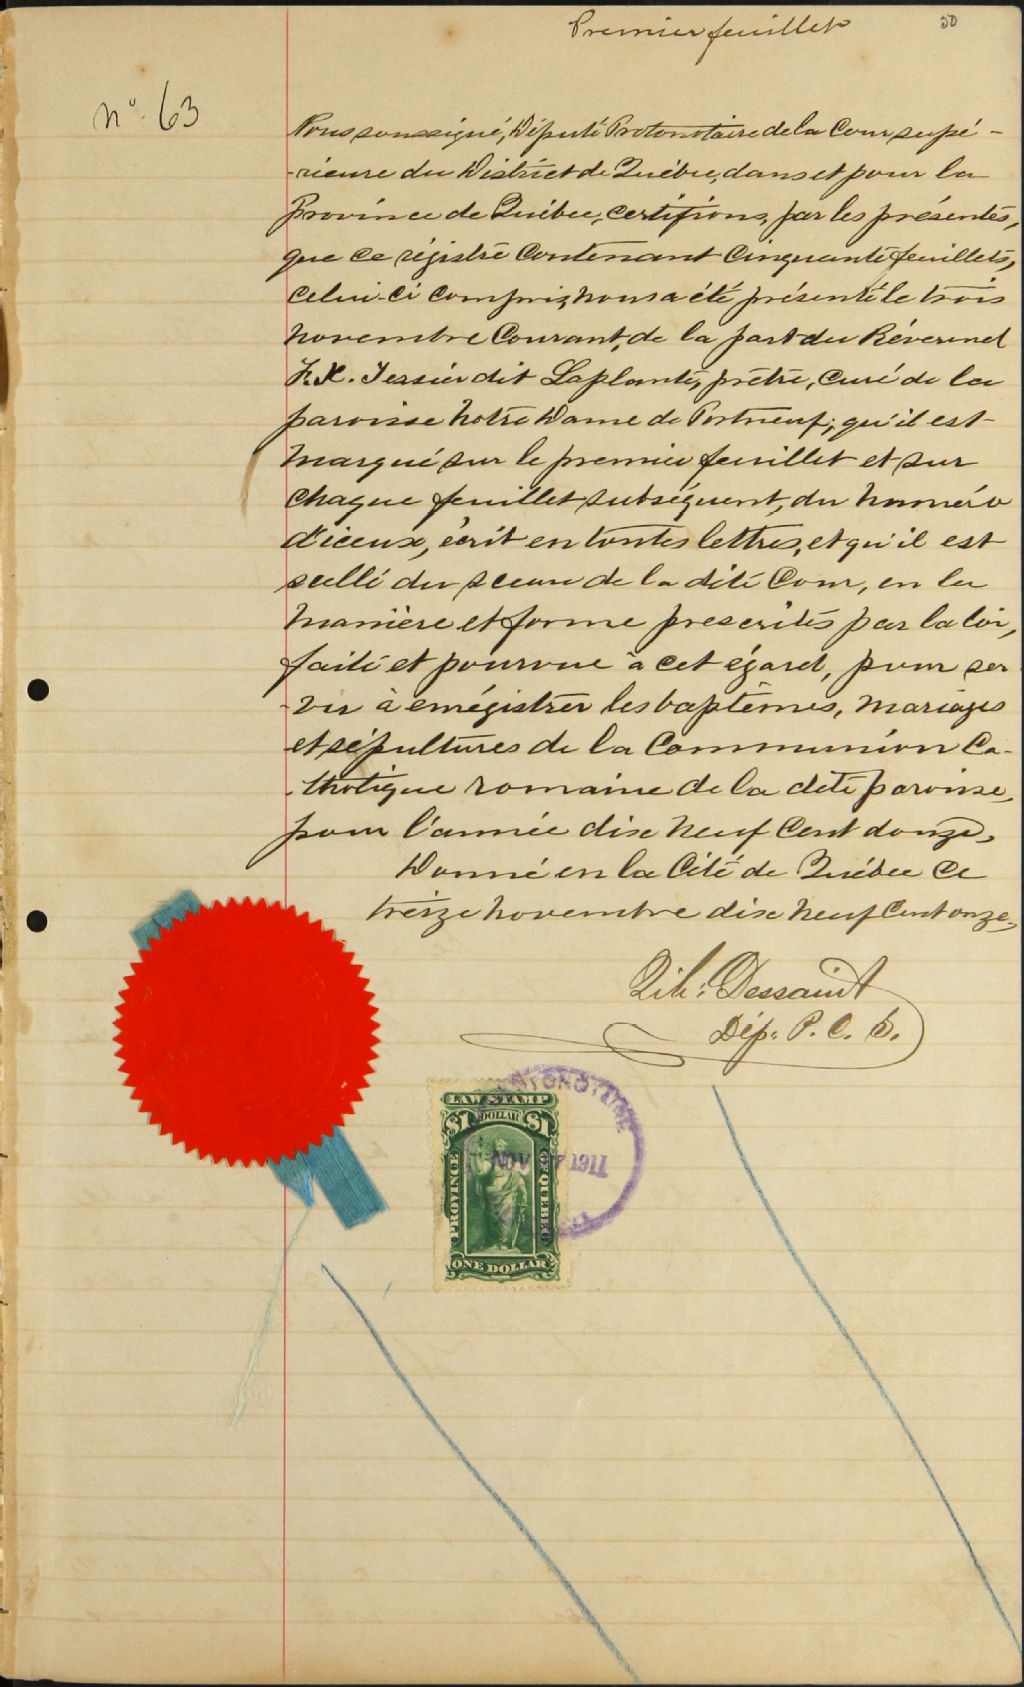 Premier feuillet
50
No. 63
Nous soussigné, Député Protonotaire de la Cour supé-
-rieure du District de Québec, dans et pour la
Province de Québec, certifions, par les présentes,
que ce régistre contenant cinquante feuillets,
celui-ci compris, nous a été présenté le trois
novembre courant, de la part du Révérend
F. X. Tessier dit Laplante, prêtre, curé de la
paroisse Notre Dame de Portneuf; qu'il est
marqué sur le premier feuillet et sur
chaque feuillet subséquent, du numéro
d'iceux, écrit en toutes lettres, et qu'il est
scellé du sceau de la dite Cour, en la
manière et forme prescrites par la loi,
faite et pourvue à cet égard, pour ser
-vir à enrégistrer les baptêmes, mariages
et sépultures de la Communion Ca-
-tholique romaine de la dite paroisse,
pour l'année dix neuf cent douze,
Donné en la Cité de Québec ce
treize novembre dix neuf cent onze,
Dessaint
Dép. P. C. S.
LAW STAMP
$1 DOLLAR $1
PROVINCE OF QUEBEC
ONE DOLLAR
NOV 1911